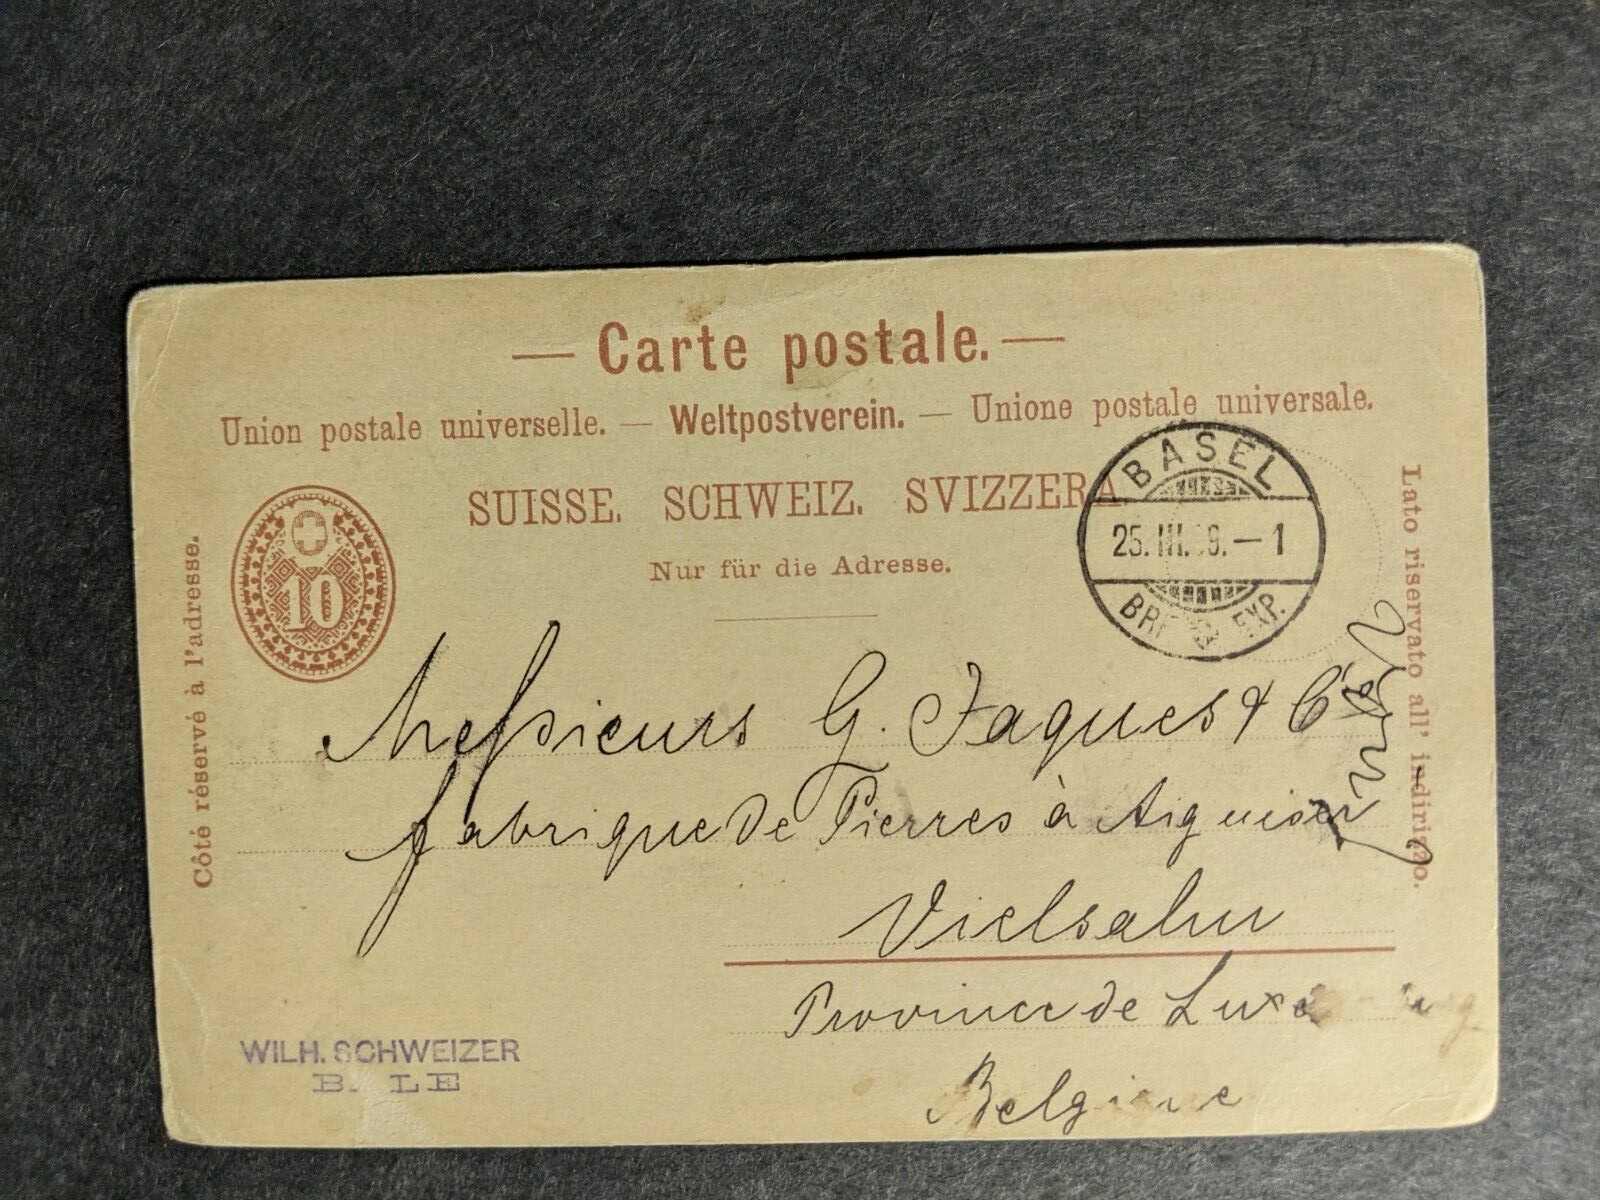 — Carte postale. —
Union postale universelle. — Weltpostverein. — Unione postale universale.
SUISSE. SCHWEIZ. SVIZZERA
Nur für die Adresse.
Côté réservé à l'adresse.
Lato riservato all' indirizzo.
10
BASEL
25. III. 9. — 1
EXP.
Messieurs G. Jaques & Cie
fabrique de Pierres à Aiguiser
Vielsalm
Province de
Belgique
WILH. SCHWEIZER
BALE